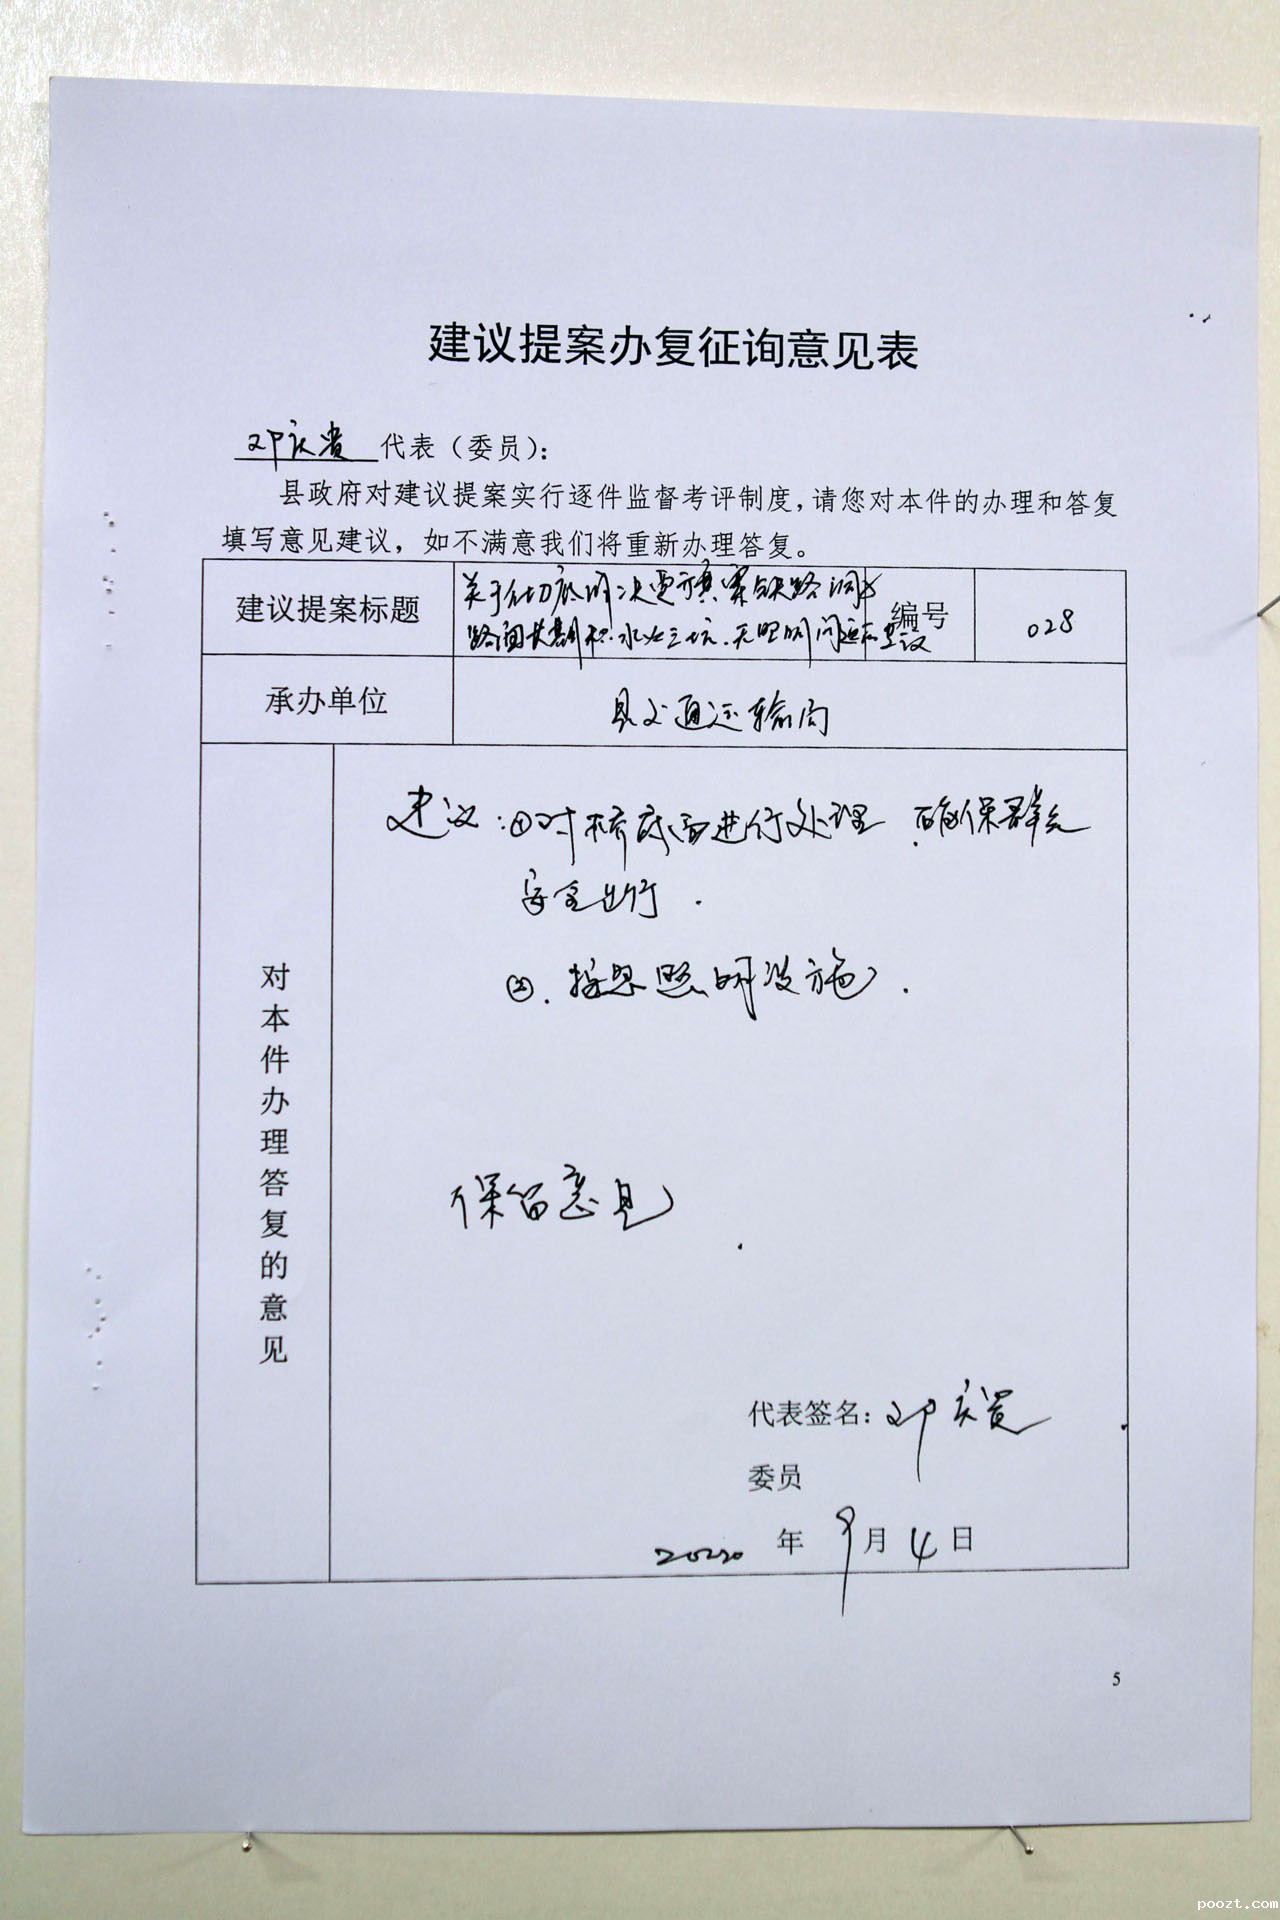 建议提案办复征询意见表
邓庆贵 代表（委员）：
县政府对建议提案实行逐件监督考评制度，请您对本件的办理和答复
填写意见建议，如不满意我们将重新办理答复。
建议提案标题
关于彻底解决 寨铁路洞
路面长期积水 坑、无照明问题的建议
编号
028
承办单位
县交通运输局
建议：①对桥底面进行处理 确保群众
安全出行．
②．按 照明设施．
对本件办理答复的意见
保留意见
代表签名：邓庆贵
委员
2020 年 9 月 4 日
5
poozt.com